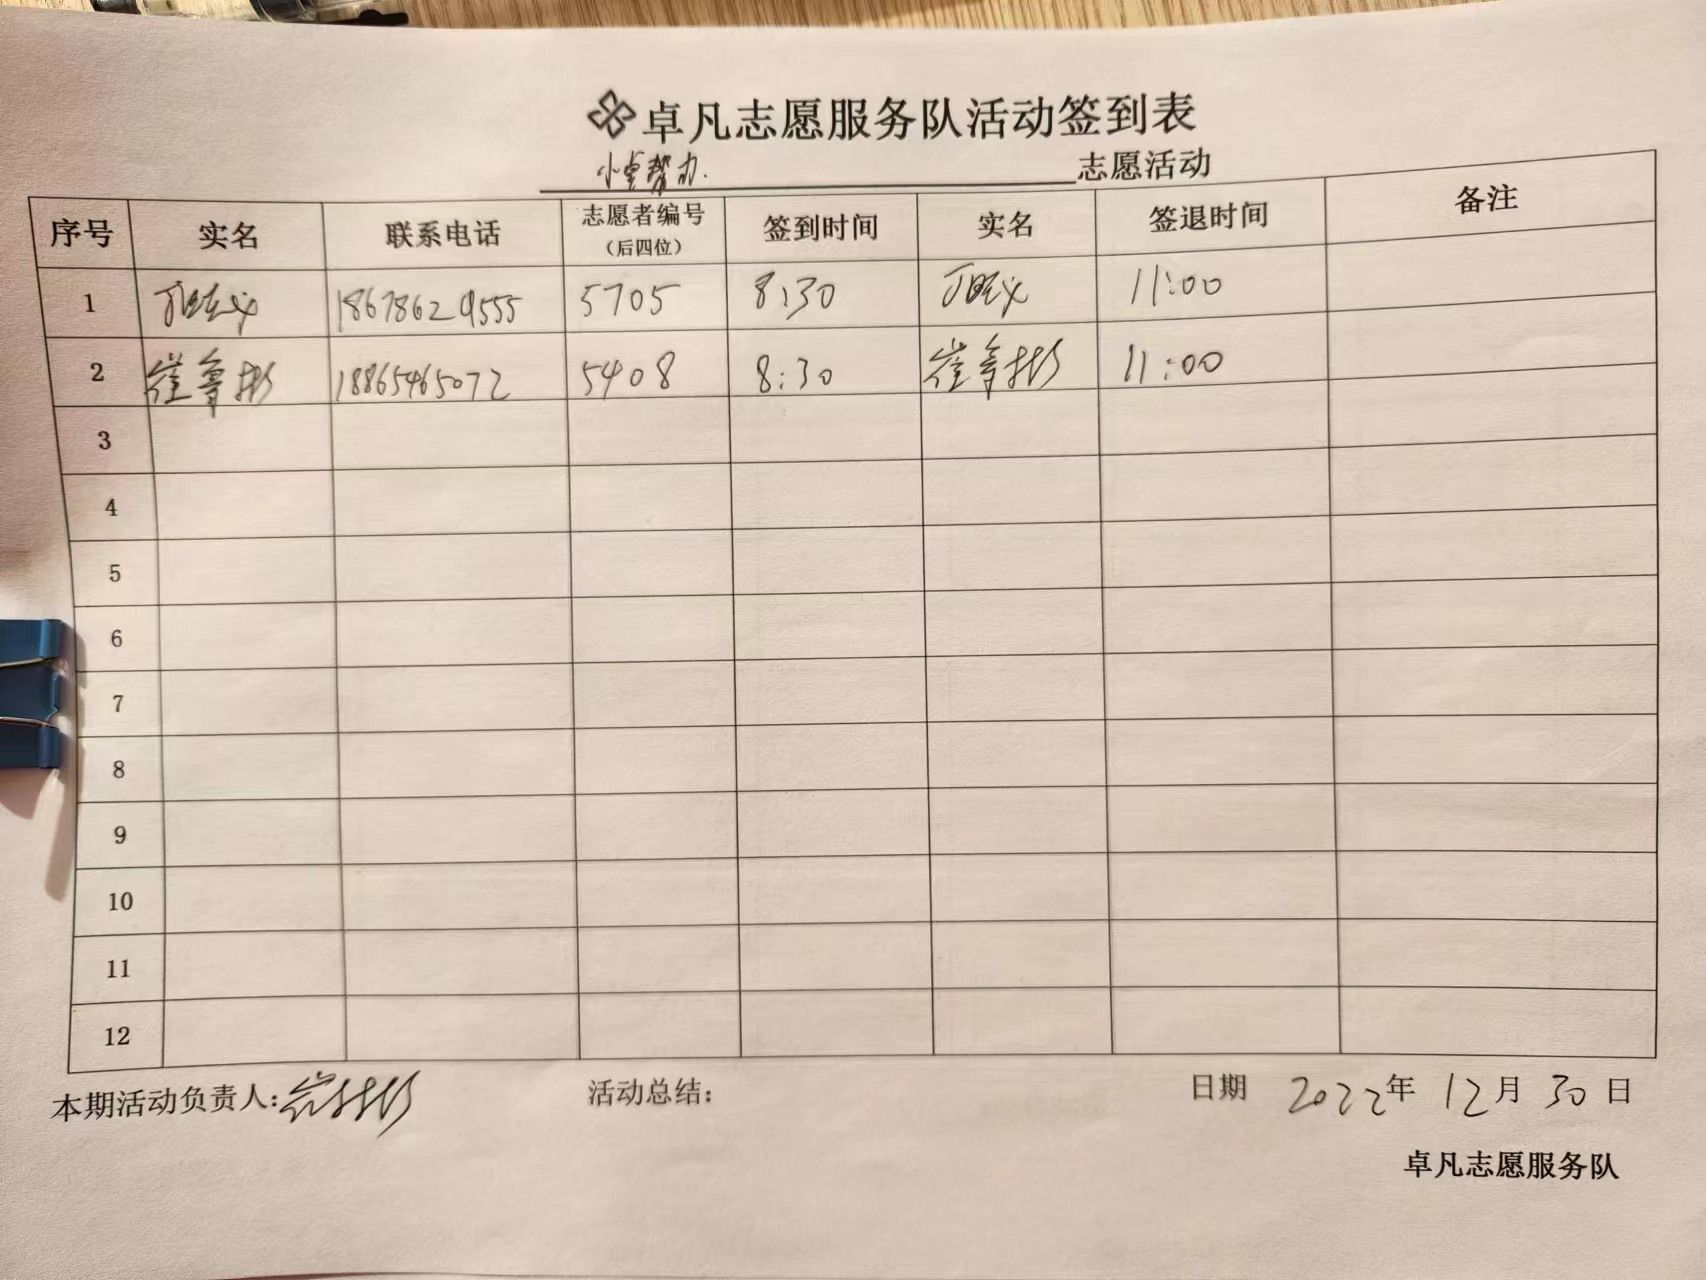 卓凡志愿服务队活动签到表
小卓帮办. 志愿活动
序号 实名 联系电话 志愿者编号（后四位） 签到时间 实名 签退时间 备注
1 18678629555 5705 8:30 11:00
2 崔鲁彬 18865465072 5408 8:30 崔鲁彬 11:00
3
4
5
6
7
8
9
10
11
12
本期活动负责人: 活动总结: 日期 2022年 12月 30日
卓凡志愿服务队